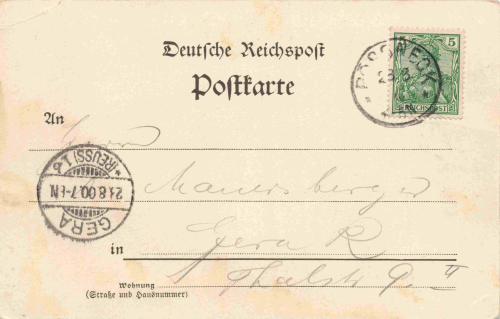 Deutsche Reichspost
Postkarte
5
REICHSPOST
PÖSSNECK
An
Herrn
Mauersberger
in Gera R
Thalstr 9 II
Wohnung
(Straße und Hausnummer)
GERA
21.8.00.7-8N.
*(REUSS)1.b